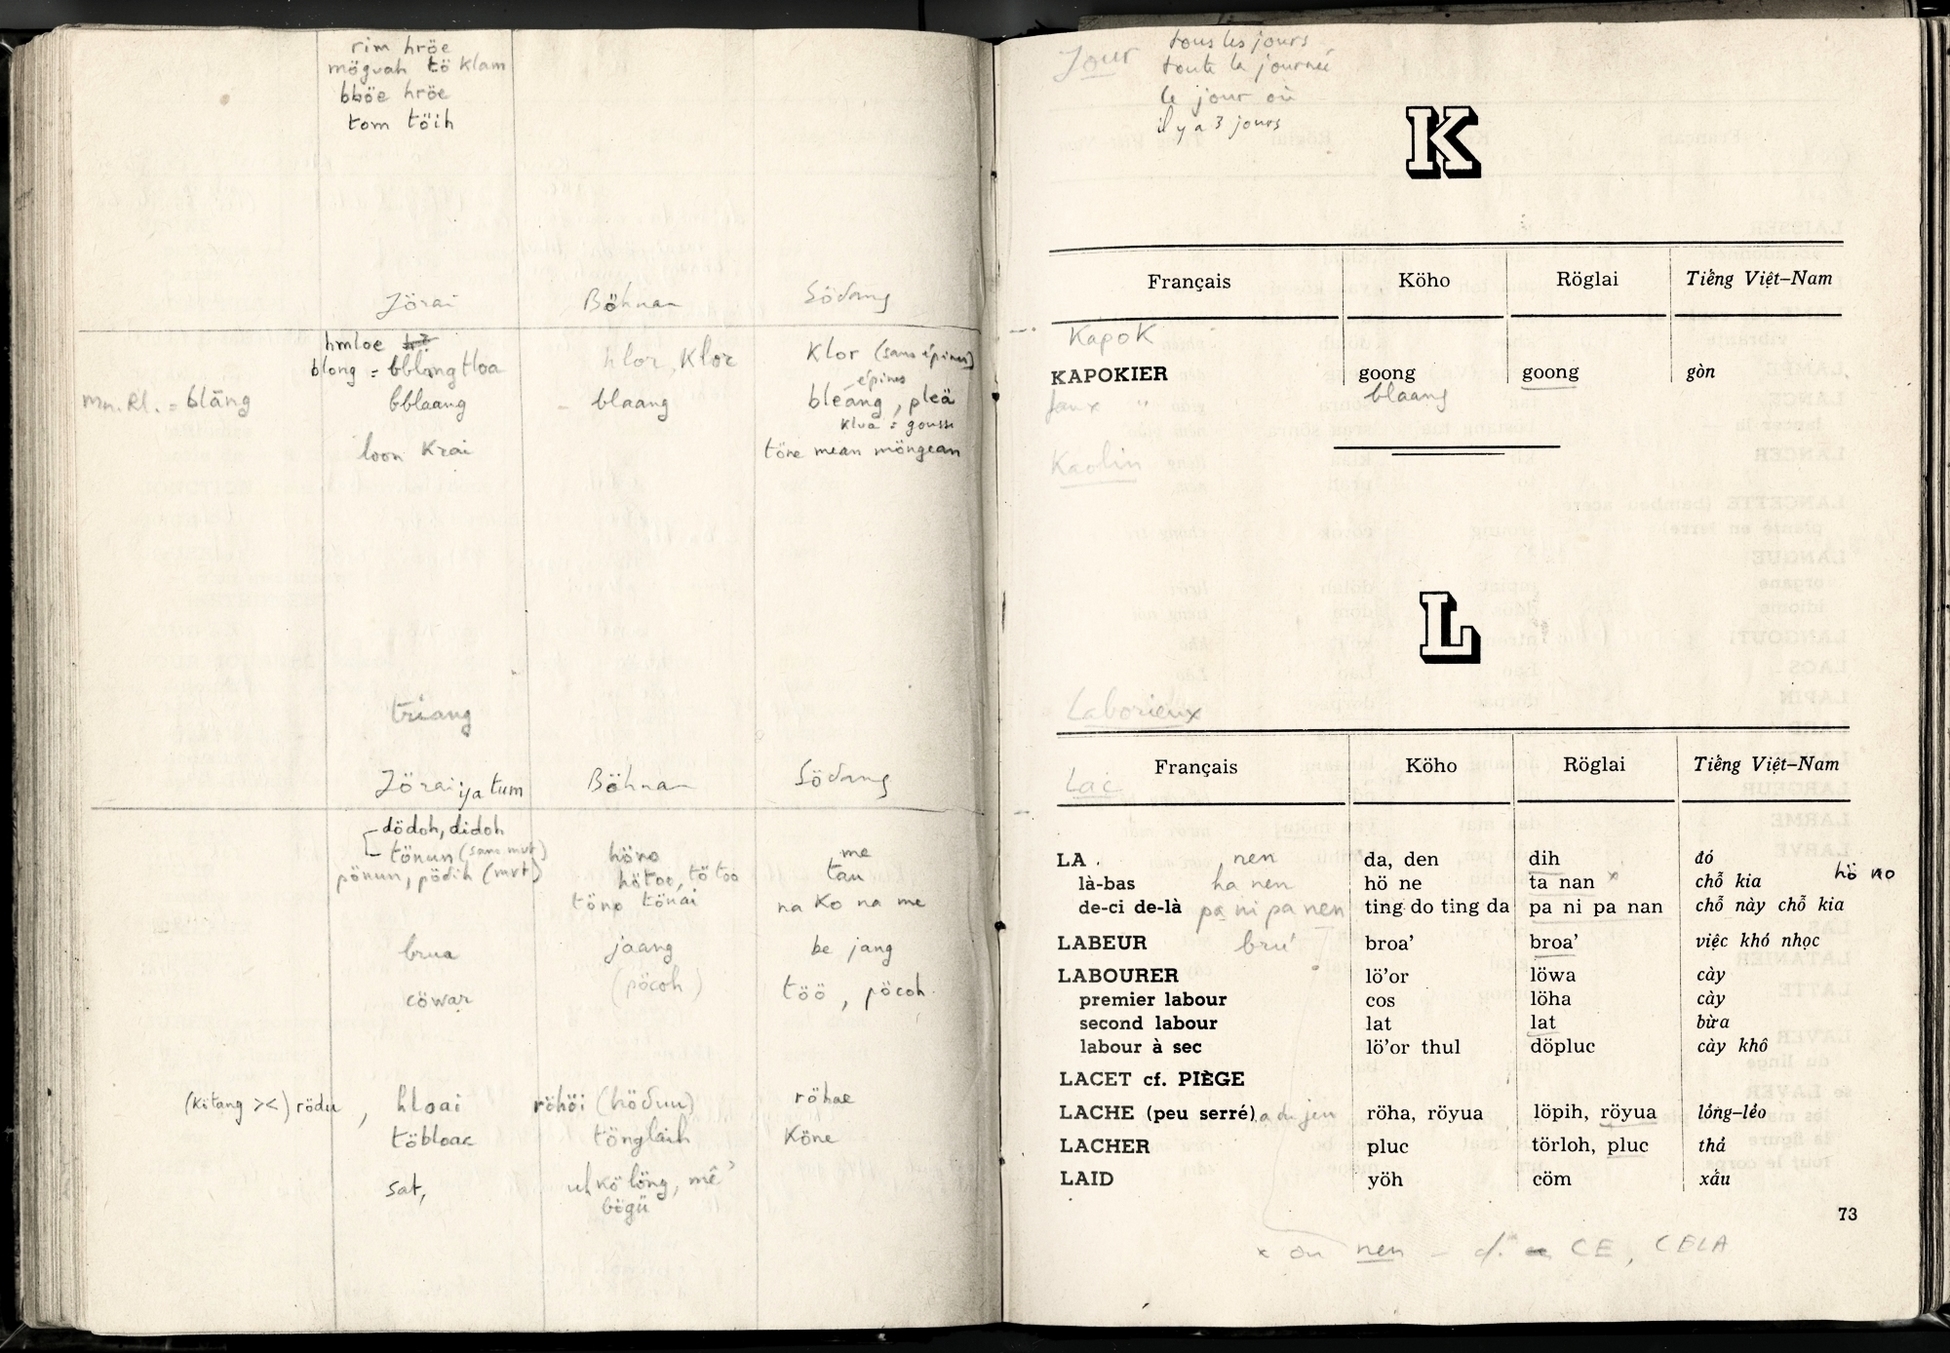 rim hröe
möguah tö klam
bböe hröe
tom töih
Jörai Böhnar Södang
hmloe
blong = bblang tloa
hlor, Klor
Klor (sans épines)
épines
mn. Rl. = blāng
bblaang
blaang
bleang, pleä
klua = gousse
loon Krai
töne mean möngean
triang
Jörai ya tum Böhnar Södang
dödoh, didoh
tönun (sans mvt)
pönun, pödih (mvt)
höno
hötoo, tö too
töno tönai
me
tau
na Ko na me
brua jaang be jang
cöwar (pöcoh) töö, pöcoh
(kitang ><) rödu, hloai röhöi (höduu) röhae
töbloac tönglaih Köne
sat, kö löng, mê
bögü
Jour
tous les jours
toute la journée
le jour où
il y a 3 jours
K
Français Köho Röglai Tiếng Việt-Nam
Kapok
KAPOKIER goong goong gòn
faux " blaang
Kaolin
L
Laborieux
Français Köho Röglai Tiếng Việt-Nam
Lac
LA nen da, den dih đó
là-bas ha nen hö ne ta nan x chỗ kia hö no
de-ci de-là pa ni pa nen ting do ting da pa ni pa nan chỗ này chỗ kia
LABEUR bru' broa' broa' việc khó nhọc
LABOURER lö'or löwa cày
premier labour cos löha cày
second labour lat lat bừa
labour à sec lö'or thul döpluc cày khô
LACET cf. PIÈGE
LACHE (peu serré) röha, röyua löpih, röyua lỏng-lẻo
LACHER pluc törloh, pluc thả
LAID yöh cöm xấu
73
x ou nen – cf. CE, CELA